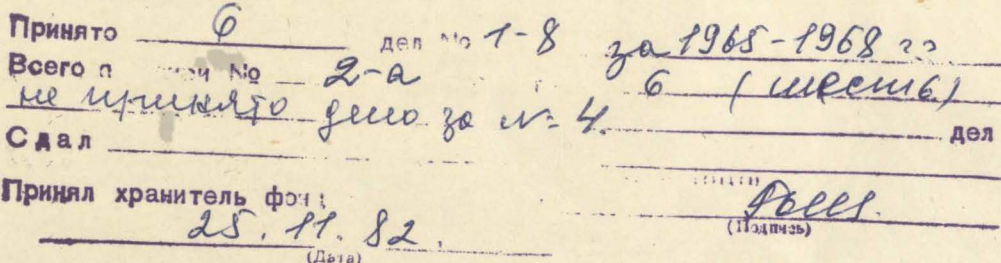 Принято 6 дел № 1-8 за 1965-1968 гг
Всего п № 2-а 6 (шесть)
не принято дело за № 4. дел
Сдал
Принял хранитель фон
(Подпись)
25.11.82.
(Дата)